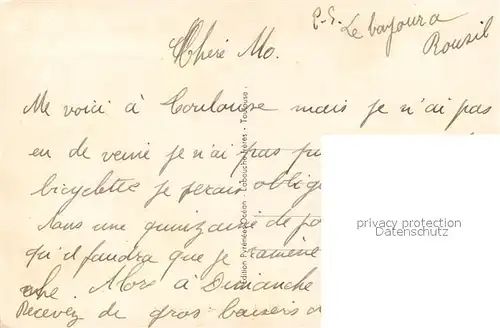 P-S. Le bonjour a
Rousil
Chère Mo.
Me voici à Toulouse mais je n'ai pas
eu de veine je n'ai pas pu
bicyclette je serais oblig
dans une quinzaine de jo
qu'il faudra que je ramène
che. Alors à Dimanche
Recevez de gros baisers
Edition Pyrénées-Océan - Labouche Frères - Toulouse
privacy protection
Datenschutz